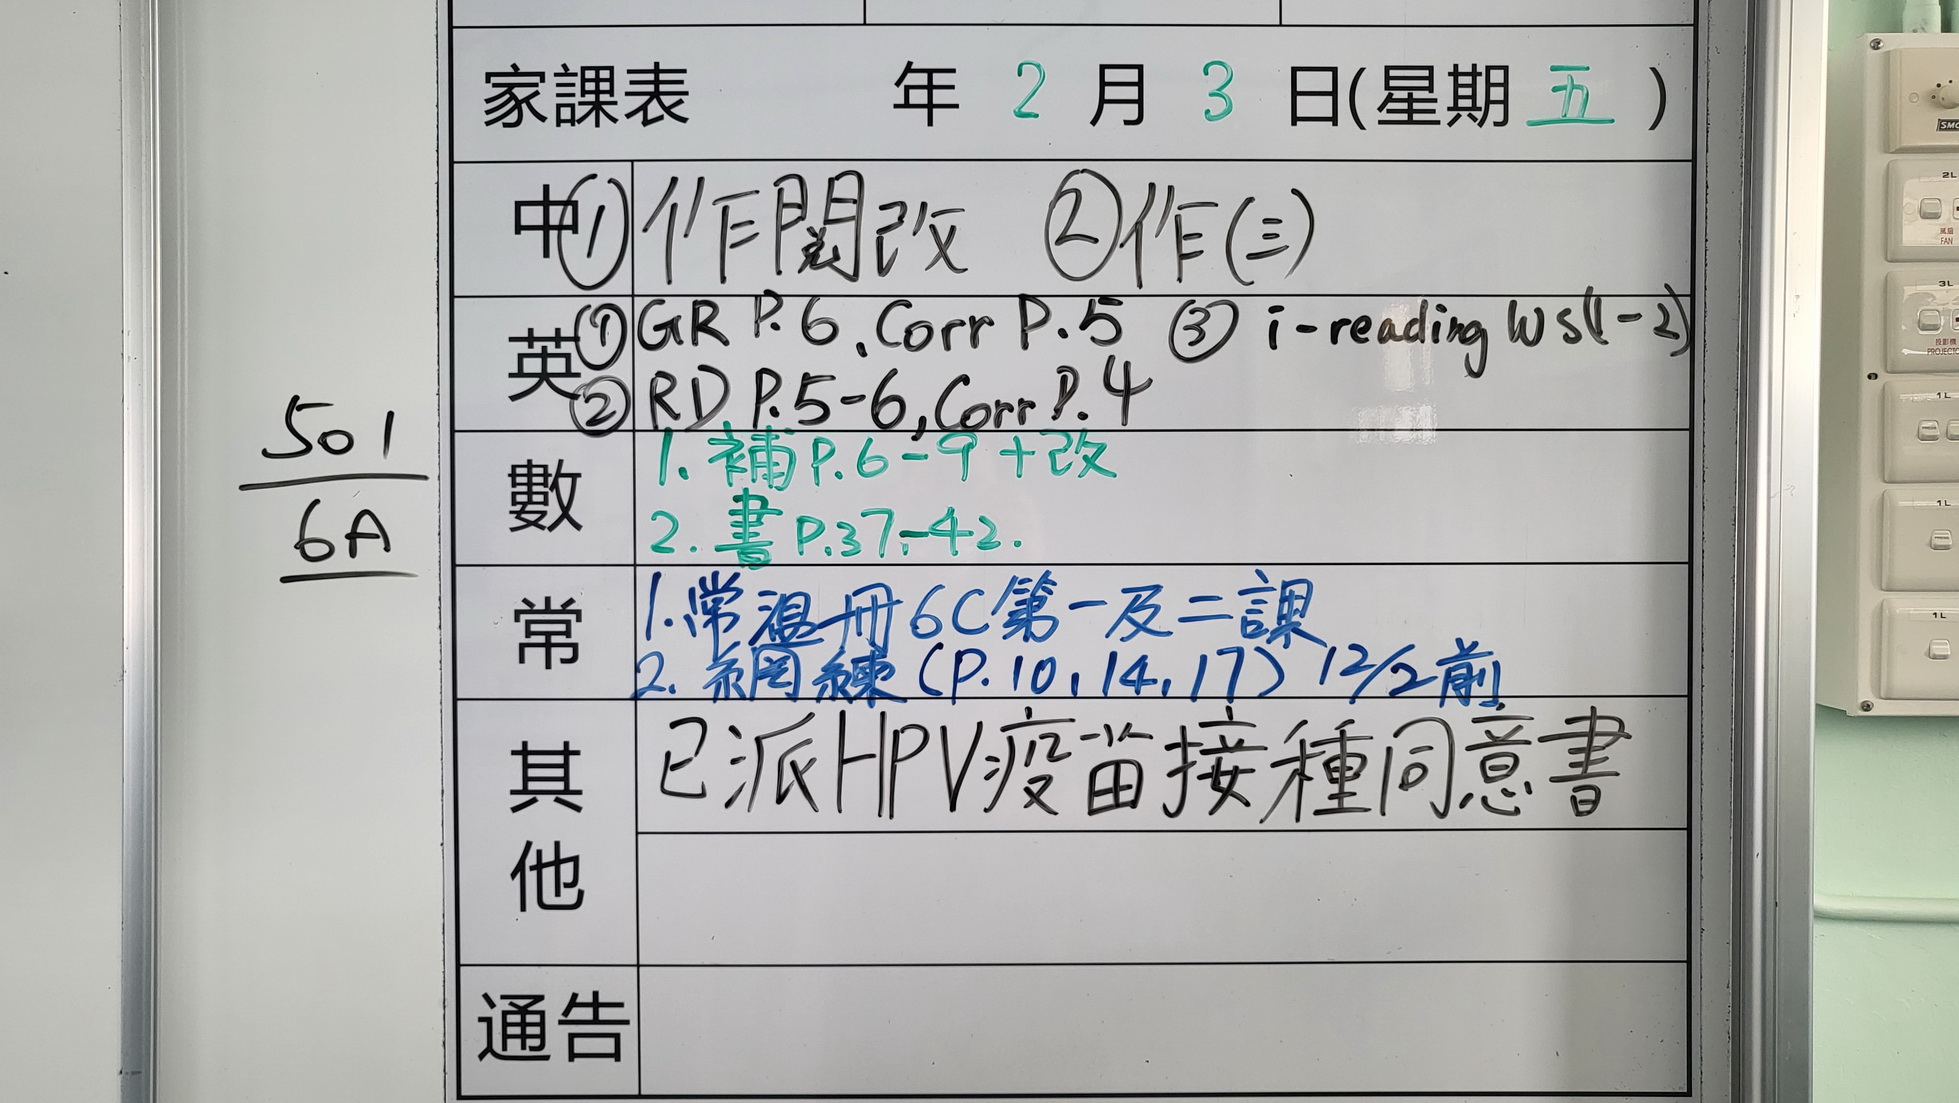 家課表 年 2 月 3 日(星期 五 )
中 ① 作閱改 ② 作(三)
英 ① GR P.6, Corr P.5 ③ i-reading WS(1-2)
② RD P.5-6, Corr P.4
數 1. 補P.6-9+改
2. 書P.37-42.
常 1. 常溫冊6C第一及二課
2. 網練(P.10, 14, 17) 12/2前
其他 已派HPV疫苗接種同意書
通告
501
6A
2L
風扇
FAN
3L
投影機
1L
1L
1L